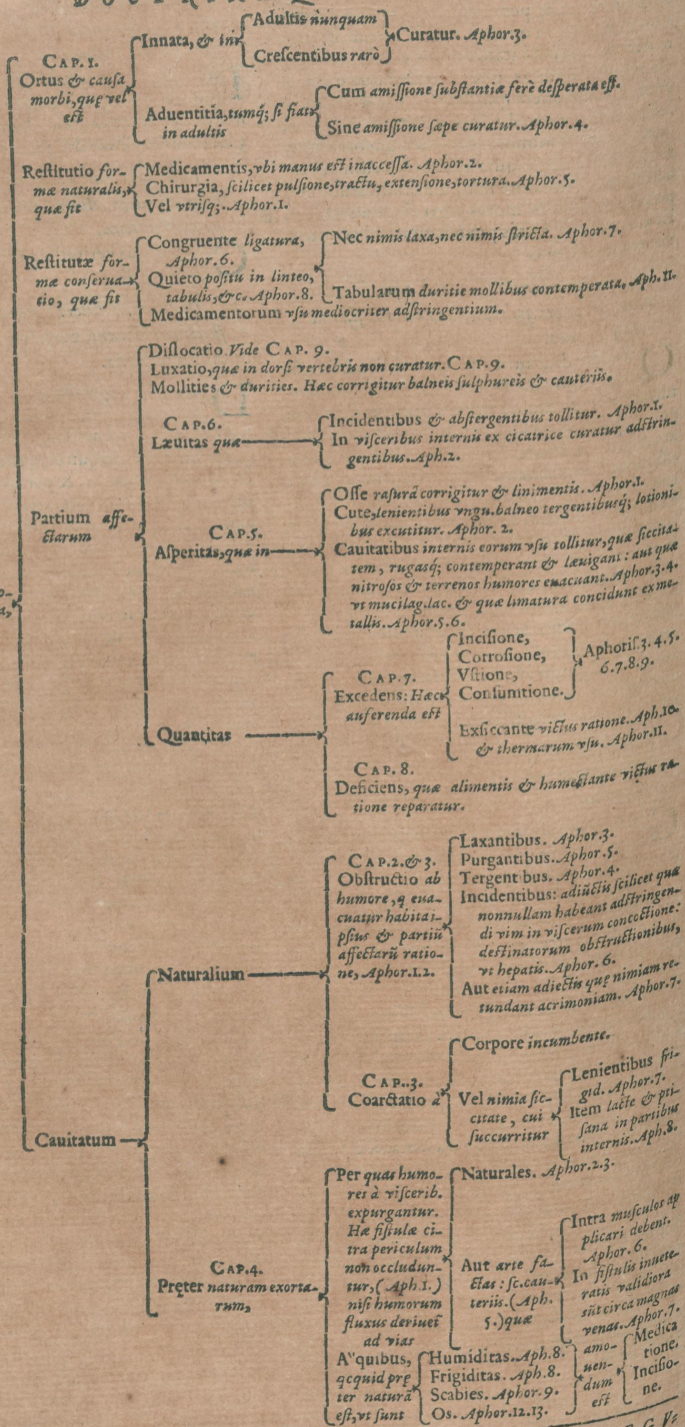 CAP. 1.
Ortus & causa
morbi, quę vel
est
Innata, & in
Adultis nunquam
Crescentibus rarò
Curatur. Aphor.3.
Aduentitia, tumq́; si fiat
in adultis
Cum amissione substantiæ ferè desperata est.
Sine amissione sæpe curatur. Aphor.4.
Restitutio for-
mæ naturalis,
quæ fit
Medicamentis, vbi manus est inaccessa. Aphor.2.
Chirurgia, scilicet pulsione, tractu, extensione, tortura. Aphor.5.
Vel vtrisq;. Aphor.1.
Restitutæ for-
mæ conserua-
tio, quæ fit
Congruente ligatura,
Aphor.6.
Nec nimis laxa, nec nimis stricta. Aphor.7.
Quieto positu in linteo,
tabulis, &c. Aphor.8.
Tabularum duritie mollibus contemperata. Aph.11.
Medicamentorum vsu mediocriter adstringentium.
Partium affe-
ctarum
Dislocatio. Vide CAP. 9.
Luxatio, quæ in dorsi vertebris non curatur. CAP.9.
Mollities & durities. Hæc corrigitur balneis sulphureis & cauteriis.
CAP.6.
Læuitas quæ
Incidentibus & abstergentibus tollitur. Aphor.1.
In visceribus internis ex cicatrice curatur adstrin-
gentibus. Aph.2.
CAP.5.
Asperitas, quæ in
Osse rasurâ corrigitur & linimentis. Aphor.1.
Cute, lenientibus vngu. balneo tergentibusq́; lotioni-
bus excutitur. Aphor. 2.
Cauitatibus internis eorum vsu tollitur, quæ siccita-
tem, rugasq́; contemperant & læuigant: aut quæ
nitrosos & terrenos humores euacuant. Aphor.3.4.
vt mucilag. lac. & quæ limatura concidunt ex me-
tallis. Aphor.5.6.
Quantitas
CAP.7.
Excedens: Hæc
auferenda est
Incisione,
Corrosione,
Vstione,
Consumitione.
Aphoris.3.4.5.
6.7.8.9.
Exsiccante victus ratione. Aph.10.
& thermarum vsu. Aphor.11.
CAP. 8.
Deficiens, quæ alimentis & humectante victus ra-
tione reparatur.
Cauitatum
Naturalium
CAP.2.& 3.
Obstructio ab
humore, q eua-
cuatur habita i-
psius & partiũ
affectarũ ratio-
ne, Aphor.1.2.
Laxantibus. Aphor.3.
Purgantibus. Aphor.5.
Tergentibus. Aphor.4.
Incidentibus: adiũctis scilicet quæ
nonnullam habeant adstringen-
di vim in viscerum concoctione:
destinatorum obstructionibus,
vt hepatis. Aphor. 6.
Aut etiam adiectis quę nimiam re-
tundant acrimoniam. Aphor.7.
CAP..3.
Coarctatio à
Corpore incumbente.
Vel nimia sic-
citate, cui
succurritur
Lenientibus fri-
gid. Aphor.7.
Item lacte & pti-
sana in partibus
internis. Aph.8.
CAP.4.
Pręter naturam exorta-
rum,
Per quas humo-
res à visceríb.
expurgantur.
Hæ fistulæ ci-
tra periculum
non occludun-
tur, (Aph.1.)
nisi humorum
fluxus deriuet̃
ad vias
Naturales. Aphor.2.3.
Aut arte fa-
ctas: sc. cau-
teriis. (Aph.
5.) quæ
Intra musculos ap
plicari debent.
Aphor.6.
In fistulis inuete-
ratis validiora
sũt circa magnas
venas. Aphor.7.
A quibus,
qcquid prę
ter naturã
est, vt sunt
Humiditas. Aph.8.
Frigiditas. Aph.8.
Scabies. Aphor.9.
Os. Aphor.12.13.
amo-
uen-
dum
est
Medica
tione,
Incisio-
ne.